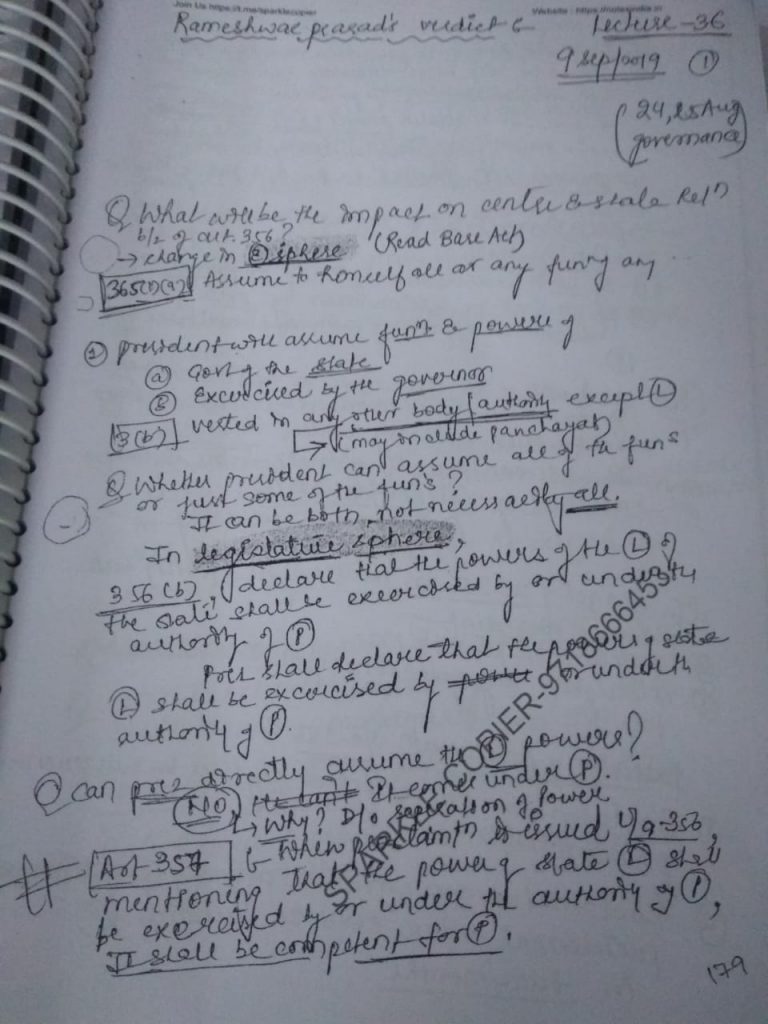 Join Us https://t.me/sparklecopier
Website : https://
Rameshwar prasad's verdict Lecture-36
9 Sep/2019 ①
(24, 25 Aug
governance)
Q What will be the impact on centre & state Relⁿ
b/z of art. 356?
→ change in ② sphere (Read Base Act)
365(1)(a) Assume to himself all or any funⁿ any ...
① president will assume funⁿ & powers of
ⓐ Govt of the state
ⓑ Excercised by the governor
3(b) vested in any other body/authority except Ⓛ
→ (may include panchayat)
Q Whether president can assume all of the funⁿs
or just some of the funⁿs?
It can be both, not necessarily all.
In legislature sphere,
356(b), declare that the powers of the Ⓛ of
the state shall be excercised by or under the
authority of Ⓟ
Pres shall declare that the powers of state
Ⓛ shall be excercised by power or under th
authority of Ⓟ.
Q can pres directly assume the Ⓛ powers?
NO It comes under Ⓟ.
→ Why? D/o separation of Power
Art 357 When proclamⁿ is issued u/a-356,
mentioning that the power of state Ⓛ shall
be exercised by or under the authority of Ⓟ,
It shall be competent for Ⓟ.
SPARKLE COPIER-9718666453
179